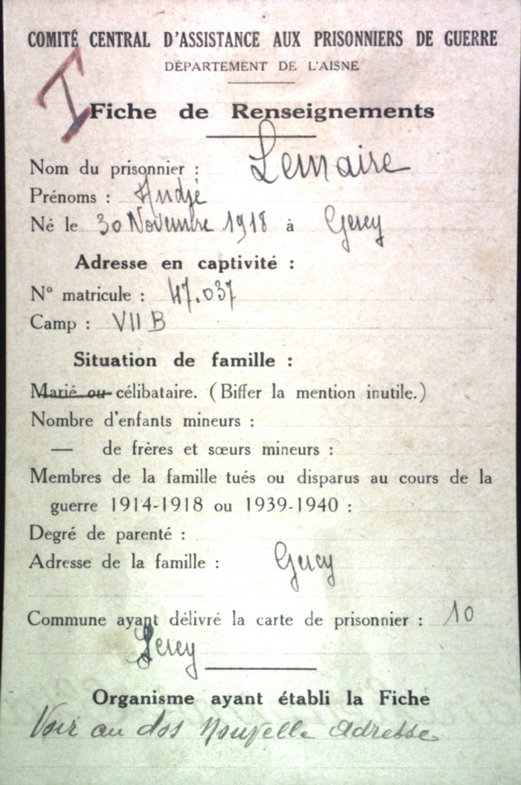 COMITÉ CENTRAL D'ASSISTANCE AUX PRISONNIERS DE GUERRE
DÉPARTEMENT DE L'AISNE
I
Fiche de Renseignements
Nom du prisonnier : Lemaire
Prénoms : Andje
Né le 30 Novembre 1918 à Gercy
Adresse en captivité :
N° matricule : 47.037
Camp : VII B
Situation de famille :
Marié ou célibataire. (Biffer la mention inutile.)
Nombre d'enfants mineurs :
— de frères et sœurs mineurs :
Membres de la famille tués ou disparus au cours de la
guerre 1914-1918 ou 1939-1940 :
Degré de parenté :
Adresse de la famille : Gercy
Commune ayant délivré la carte de prisonnier : 10
Gercy
Organisme ayant établi la Fiche
Voir au dos Nouvelle adresse